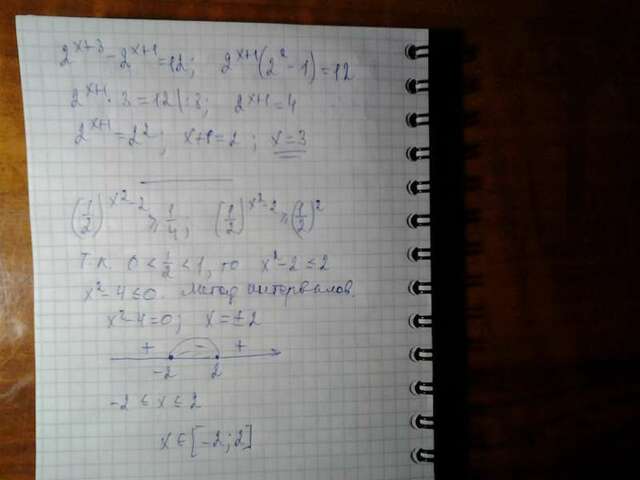 2^{x+3} - 2^{x+1} = 12; 2^{x+1}(2^2 - 1) = 12
2^{x+1} · 3 = 12 |:3; 2^{x+1} = 4
2^{x+1} = 2^2; x+1 = 2; x = 3
(1/2)^{x^2-2} ≥ 1/4; (1/2)^{x^2-2} ≥ (1/2)^2
Т.к. 0 < 1/2 < 1, то x^2 - 2 ≤ 2
x^2 - 4 ≤ 0. Метод интервалов.
x^2 - 4 = 0; x = ±2
+ - +
-2 2
-2 ≤ x ≤ 2
x ∈ [-2; 2]